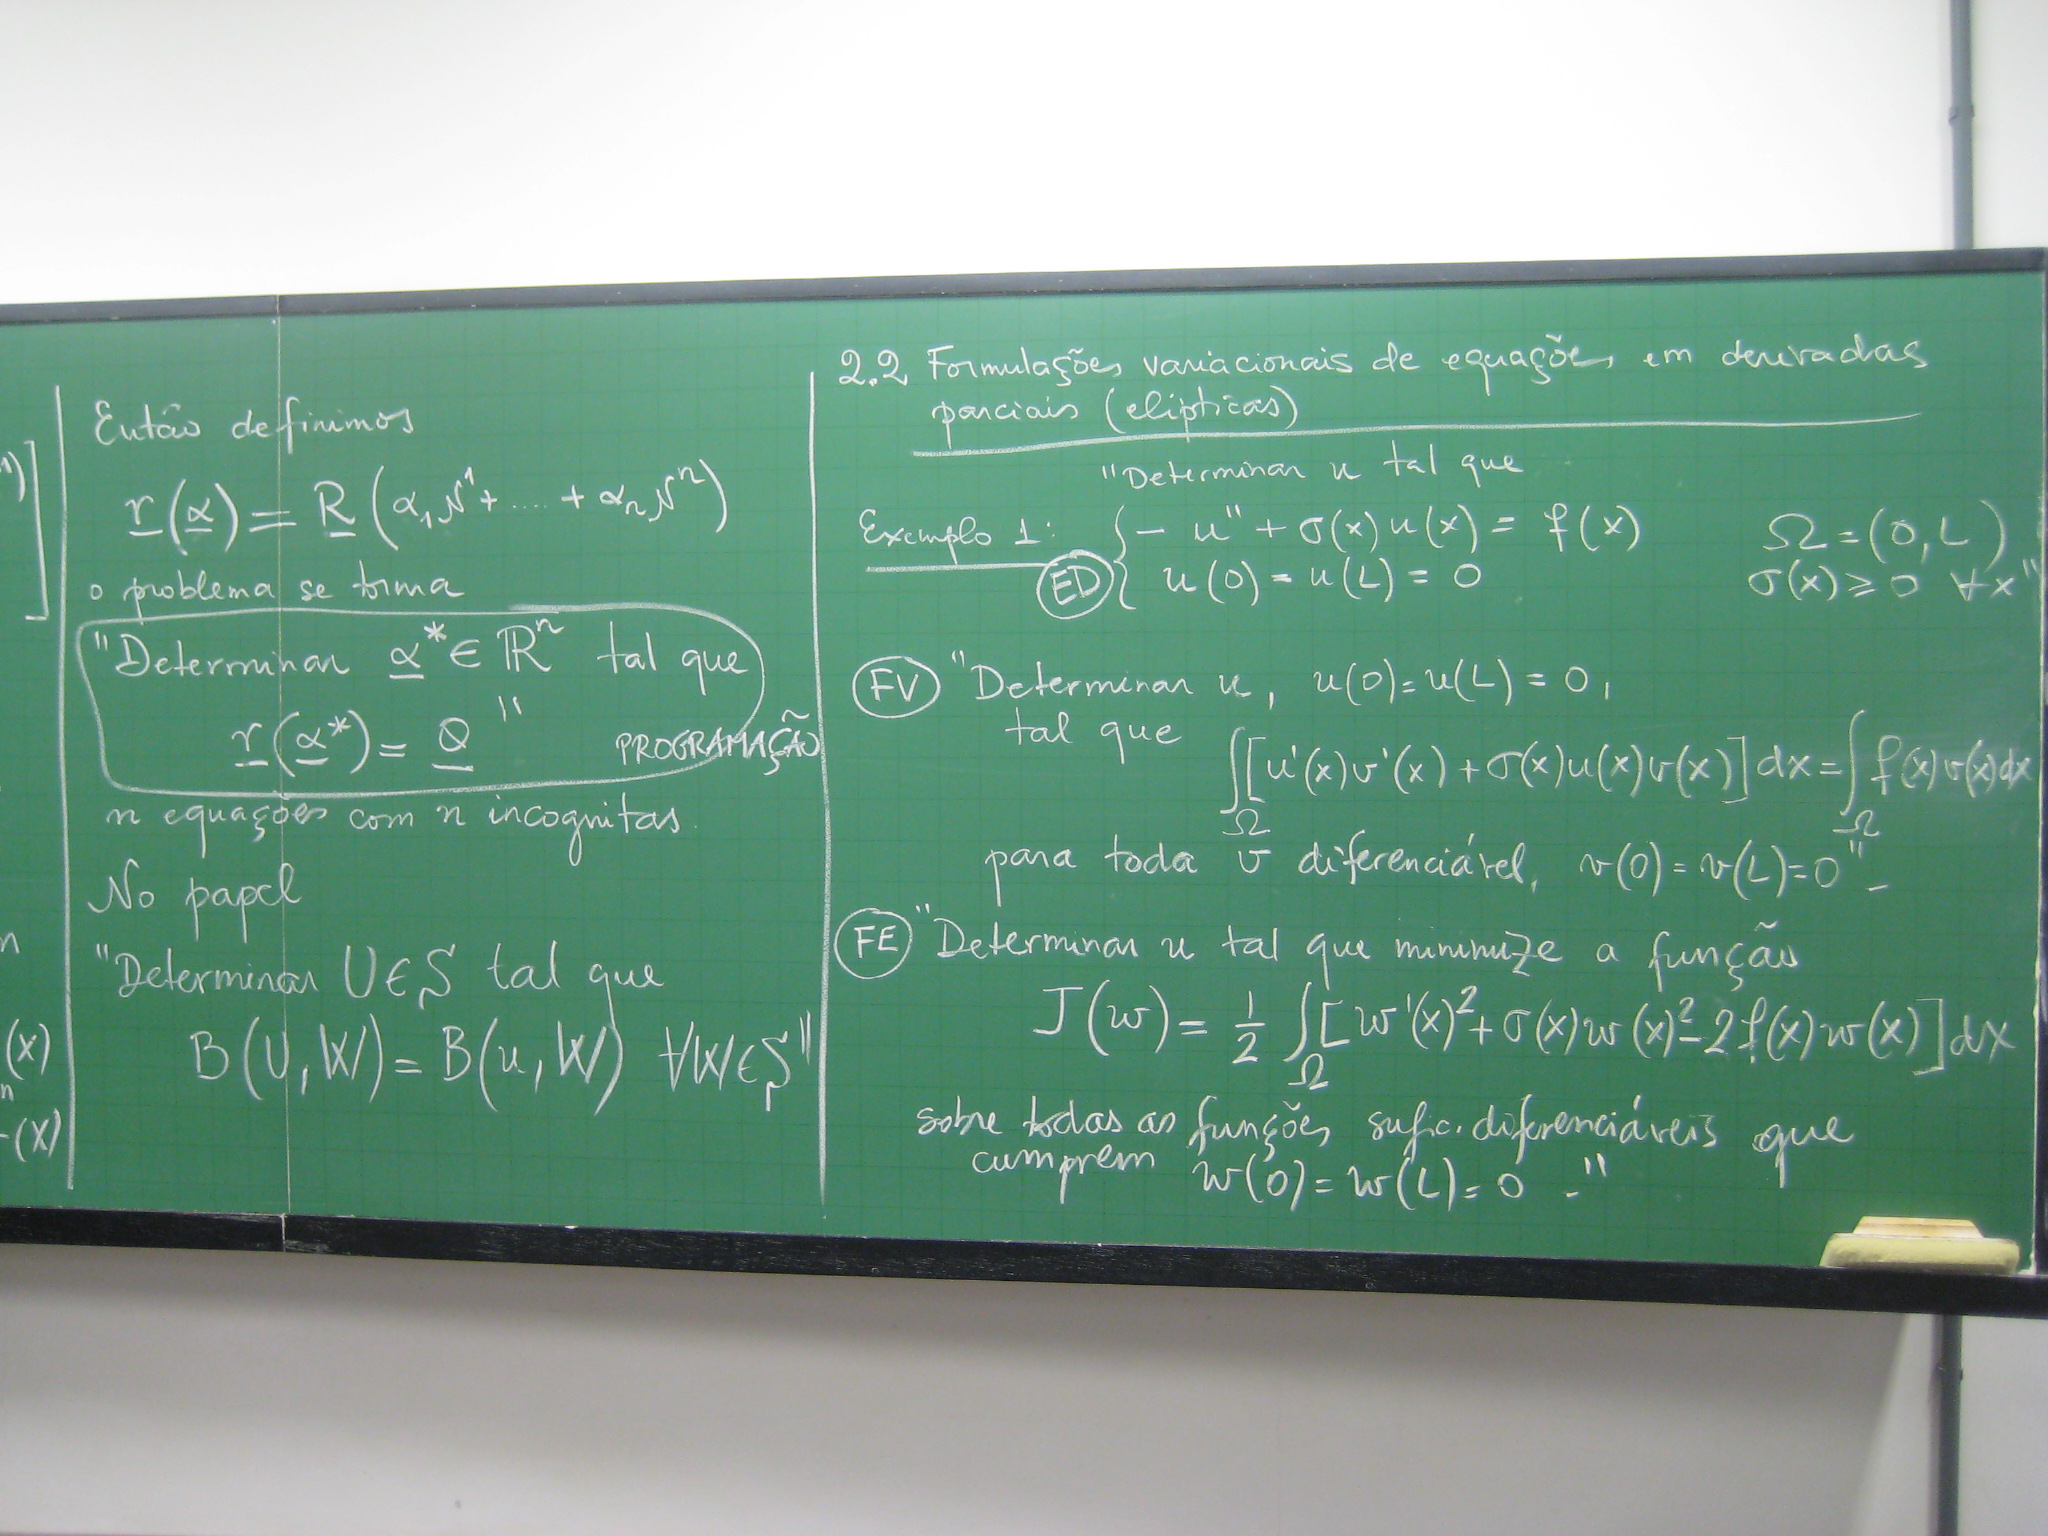 1)
(x)
n
-(x)
Então definimos
r(α) = R(α₁N¹ + .... + αₙNⁿ)
o problema se torna
"Determinar α* ∈ ℝⁿ tal que
r(α*) = 0 "
PROGRAMAÇÃO
n equações com n incognitas.
No papel
"Determinar U ∈ S tal que
B(U, W) = B(u, W) ∀W ∈ S"
2.2 Formulações variacionais de equações em derivadas
parciais (elipticas)
"Determinar u tal que
Exemplo 1: { - u" + σ(x) u(x) = f(x) Ω = (0, L)
ED { u(0) = u(L) = 0 σ(x) ⩾ 0 ∀x"
FV "Determinar u, u(0) = u(L) = 0,
tal que ∫_Ω [u'(x)v'(x) + σ(x)u(x)v(x)] dx = ∫_Ω f(x)v(x)dx
para toda v diferenciável, v(0) = v(L) = 0" -
FE "Determinar u tal que minimize a função
J(w) = 1/2 ∫_Ω [w'(x)² + σ(x)w(x)² - 2f(x)w(x)] dx
sobre todas as funções sufic. diferenciáveis que
cumprem w(0) = w(L) = 0 ."